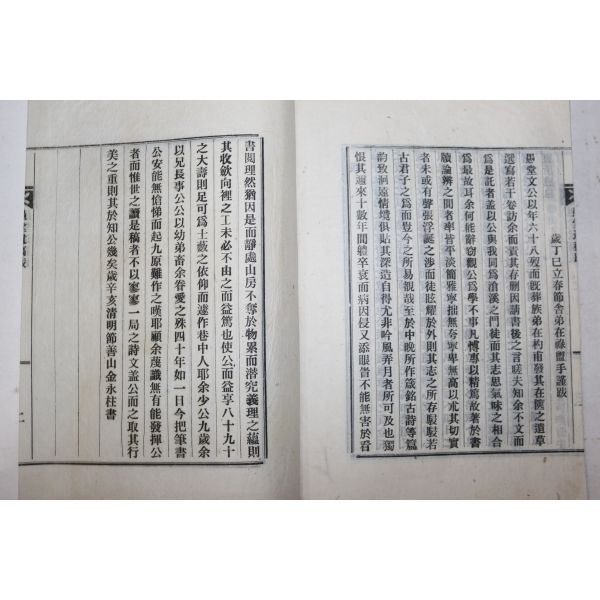 歲丁巳立春節舍弟在祿盥手謹跋
愚堂文公以年六十八歿而旣葬族弟在杓甫發其在篋之遺草
選寫若干卷訪余而責其存刪因請書後之言嗟夫知余不文而
爲是託者盖以公與我同爲滄溪之門徒而其志思氣味之相合
爲最故耳余何能辭窃觀公爲學不事凡博專以精篤故著於書
牘論辨之間者率皆平淡簡雅寧拙無夸寧卑無高以尤其切實
者未或有聲張浮誕之涉而徒眩耀於外則其志之所存駸駸若
古君子之爲而豈今之所易覯哉至於中晩所作箴銘古詩等篇
韵致洞遠情境俱貼其深造自得尤非吟風弄月者所可及也獨
恨其邇來十數年間體卒衰而病因侵又添眼眚不能無害於看
書閱理然猶因是而靜處山房不奪於物累而潜究義理之蘊則
其收歛向裡之工未必不由之而益篤也使公而益享八十九十
之大壽則足可爲士藪之依仰而遽作巷中人耶余少公九歲余
以兄長事公公以幼弟畜余眷愛之殊四十年如一日今把筆書
公安能無愴悌而起九原難作之嘆耶顧余蔑識無有能發揮公
者而惟世之讀是稿者不以寥寥一局之詩文盖公而之取其行
美之重則其於知公幾矣歲辛亥清明節善山金永柱書